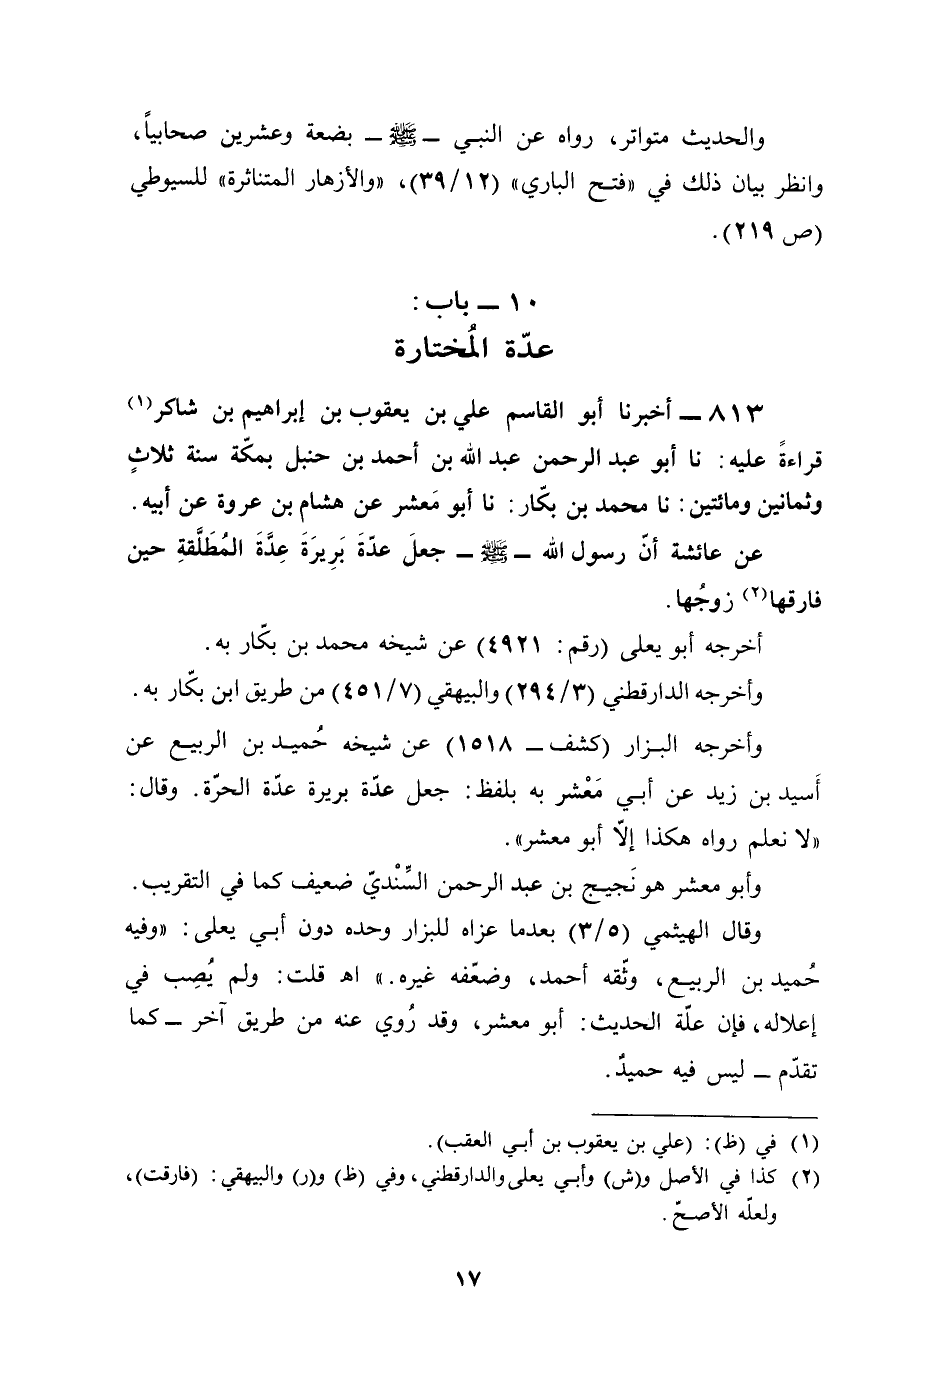 والحديث متواتر، رواه عن النبي ــ ﷺ ــ بضعة وعشرين صحابياً،
وانظر بيان ذلك في «فتح الباري» (٣٩/١٢)، «والأزهار المتناثرة» للسيوطي
(ص ٢١٩).
١٠ ــ باب:
عدّة المُختارة
٨١٣ ــ أخبرنا أبو القاسم علي بن يعقوب بن إبراهيم بن شاكر(١)
قراءةً عليه: نا أبو عبد الرحمن عبد الله بن أحمد بن حنبل بمكّة سنة ثلاثٍ
وثمانين ومائتين: نا محمد بن بكّار: نا أبو مَعشر عن هشام بن عروة عن أبيه.
عن عائشة أنّ رسول الله ــ ﷺ ــ جعلَ عدّةَ بَرِيرَةَ عِدَّةَ المُطَلَّقةِ حين
فارقها(٢) زوجُها.
أخرجه أبو يعلى (رقم: ٤٩٢١) عن شيخه محمد بن بكّار به.
وأخرجه الدارقطني (٢٩٤/٣) والبيهقي (٤٥١/٧) من طريق ابن بكّار به.
وأخرجه البزار (كشف ــ ١٥١٨) عن شيخه حُميد بن الربيع عن
أَسيد بن زيد عن أبي مَعْشر به بلفظ: جعل عدّة بريرة عدّة الحرّة. وقال:
«لا نعلم رواه هكذا إلّا أبو معشر».
وأبو معشر هو نَجيح بن عبد الرحمن السِّنْديّ ضعيف كما في التقريب.
وقال الهيثمي (٣/٥) بعدما عزاه للبزار وحده دون أبي يعلى: «وفيه
حُميد بن الربيع، وثّقه أحمد، وضعّفه غيره.» اهـ قلت: ولم يُصِب في
إعلاله، فإن علّة الحديث: أبو معشر، وقد رُوي عنه من طريق آخر ــ كما
تقدّم ــ ليس فيه حميدٌ.
(١) في (ظ): (علي بن يعقوب بن أبي العقب).
(٢) كذا في الأصل و(ش) وأبي يعلى والدارقطني، وفي (ظ) و(ر) والبيهقي: (فارقت)،
ولعلّه الأصحّ.
١٧